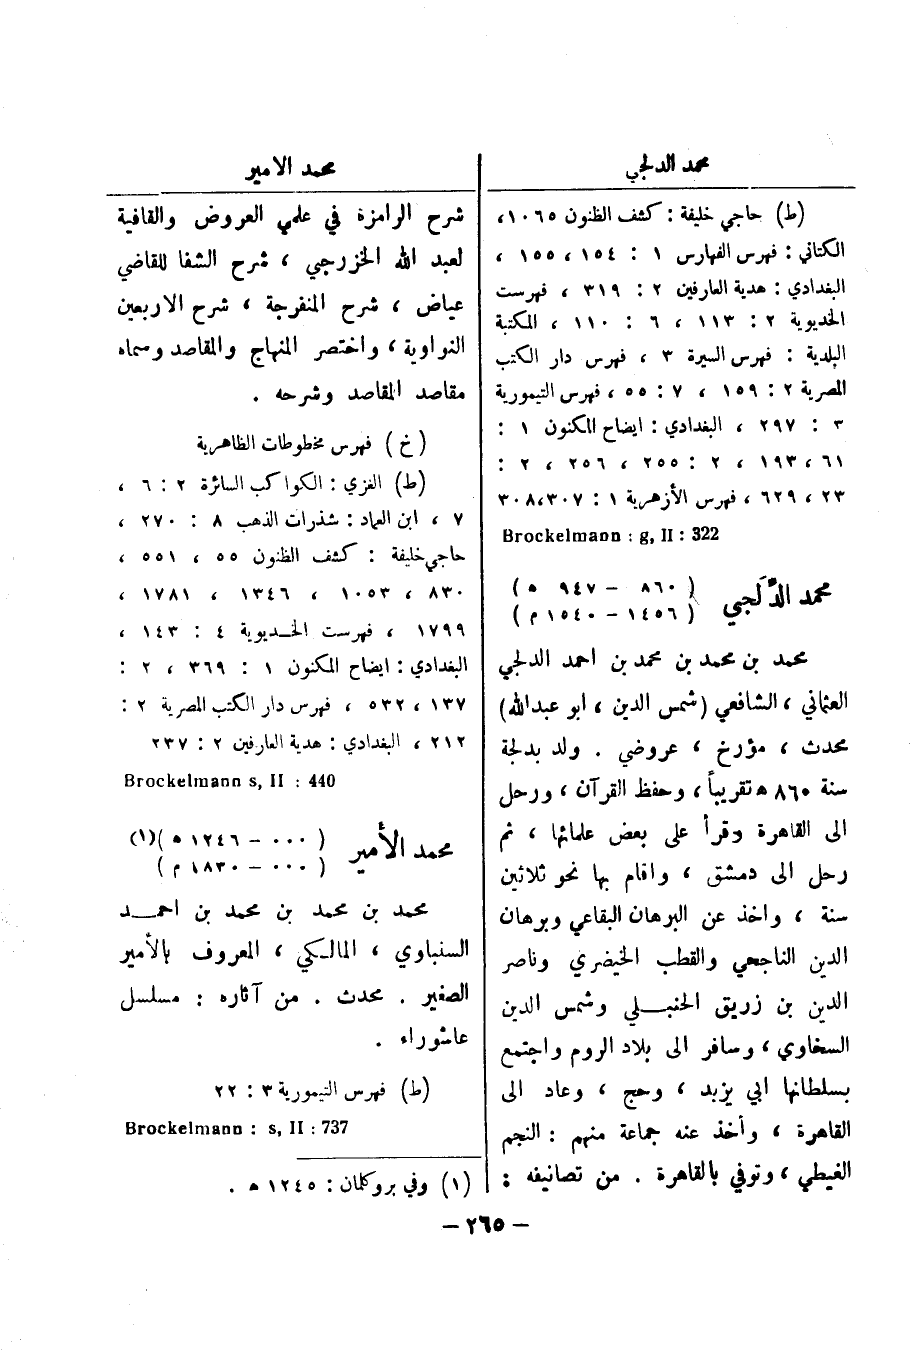 محمد الدلجي
(ط) حاجي خليفة : كشف الظنون ١٠٦٥،
الكتاني : فهرس الفهارس ١ : ١٥٤ ، ١٥٥ ،
البغدادي : هدية العارفين ٢ : ٣١٩ ، فهرست
الخديوية ٢ : ١١٣ ، ٦ : ١١٠ ، المكتبة
البلدية : فهرس السيرة ٣ ، فهرس دار الكتب
المصرية ٢ : ١٥٩ ، ٧ : ٥٥ ، فهرس التيمورية
٣ : ٢٩٧ ، البغدادي : ايضاح المكنون ١ :
٦١ ، ١٩٣ ، ٢ : ٢٥٥ ، ٢٥٦ ، ٢ :
٢٣ ، ٦٢٩ ، فهرس الأزهرية ١ : ٣٠٧، ٣٠٨
Brockelmann : g, II : 322
محمد الدَّلَجي (٨٦٠ – ٩٤٧ ه)
(١٤٥٦ – ١٥٤٠ م)
محمد بن محمد بن محمد بن احمد الدلجي
العثماني ، الشافعي (شمس الدين ، ابو عبدالله)
محدث ، مؤرخ ، عروضي . ولد بدلجة
سنة ٨٦٠ ه تقريباً ، وحفظ القرآن ، ورحل
الى القاهرة وقرأ على بعض علمائها ، ثم
رحل الى دمشق ، واقام بها نحو ثلاثين
سنة ، واخذ عن البرهان البقاعي وبرهان
الدين الناجي والقطب الخيضري وناصر
الدين بن زريق الحنبلي وشمس الدين
السخاوي ، وسافر الى بلاد الروم واجتمع
بسلطانها ابي يزيد ، وحج ، وعاد الى
القاهرة ، وأخذ عنه جماعة منهم : النجم
الغيطي ، وتوفي بالقاهرة . من تصانيفه :
محمد الامير
شرح الرامزة في علمي العروض والقافية
لعبد الله الخزرجي ، شرح الشفا للقاضي
عياض ، شرح المنفرجة ، شرح الاربعين
النواوية ، واختصر المنهاج والمقاصد وسماه
مقاصد المقاصد وشرحه .
(خ) فهرس مخطوطات الظاهرية
(ط) الغزي : الكواكب السائرة ٢ : ٦ ،
٧ ، ابن العماد : شذرات الذهب ٨ : ٢٧٠ ،
حاجي خليفة : كشف الظنون ٥٥ ، ٥٥١ ،
٨٣٠ ، ١٠٥٣ ، ١٣٤٦ ، ١٧٨١ ،
١٧٩٩ ، فهرست الخديوية ٤ : ١٤٣ ،
البغدادي : ايضاح المكنون ١ : ٣٦٩ ، ٢ :
١٣٧ ، ٥٣٢ ، فهرس دار الكتب المصرية ٢ :
٢١٢ ، البغدادي : هدية العارفين ٢ : ٢٣٧
Brockelmann s, II : 440
محمد الأمير (٠٠٠ – ١٢٤٦ ه)(١)
(٠٠٠ – ١٨٣٠ م)
محمد بن محمد بن محمد بن احمد
السنباوي ، المالكي ، المعروف بالأمير
الصغير . محدث . من آثاره : مسلسل
عاشوراء .
(ط) فهرس التيمورية ٣ : ٢٢
Brockelmann : s, II : 737
(١) وفي بروكلمان : ١٢٤٥ ه .
– ٢٦٥ –